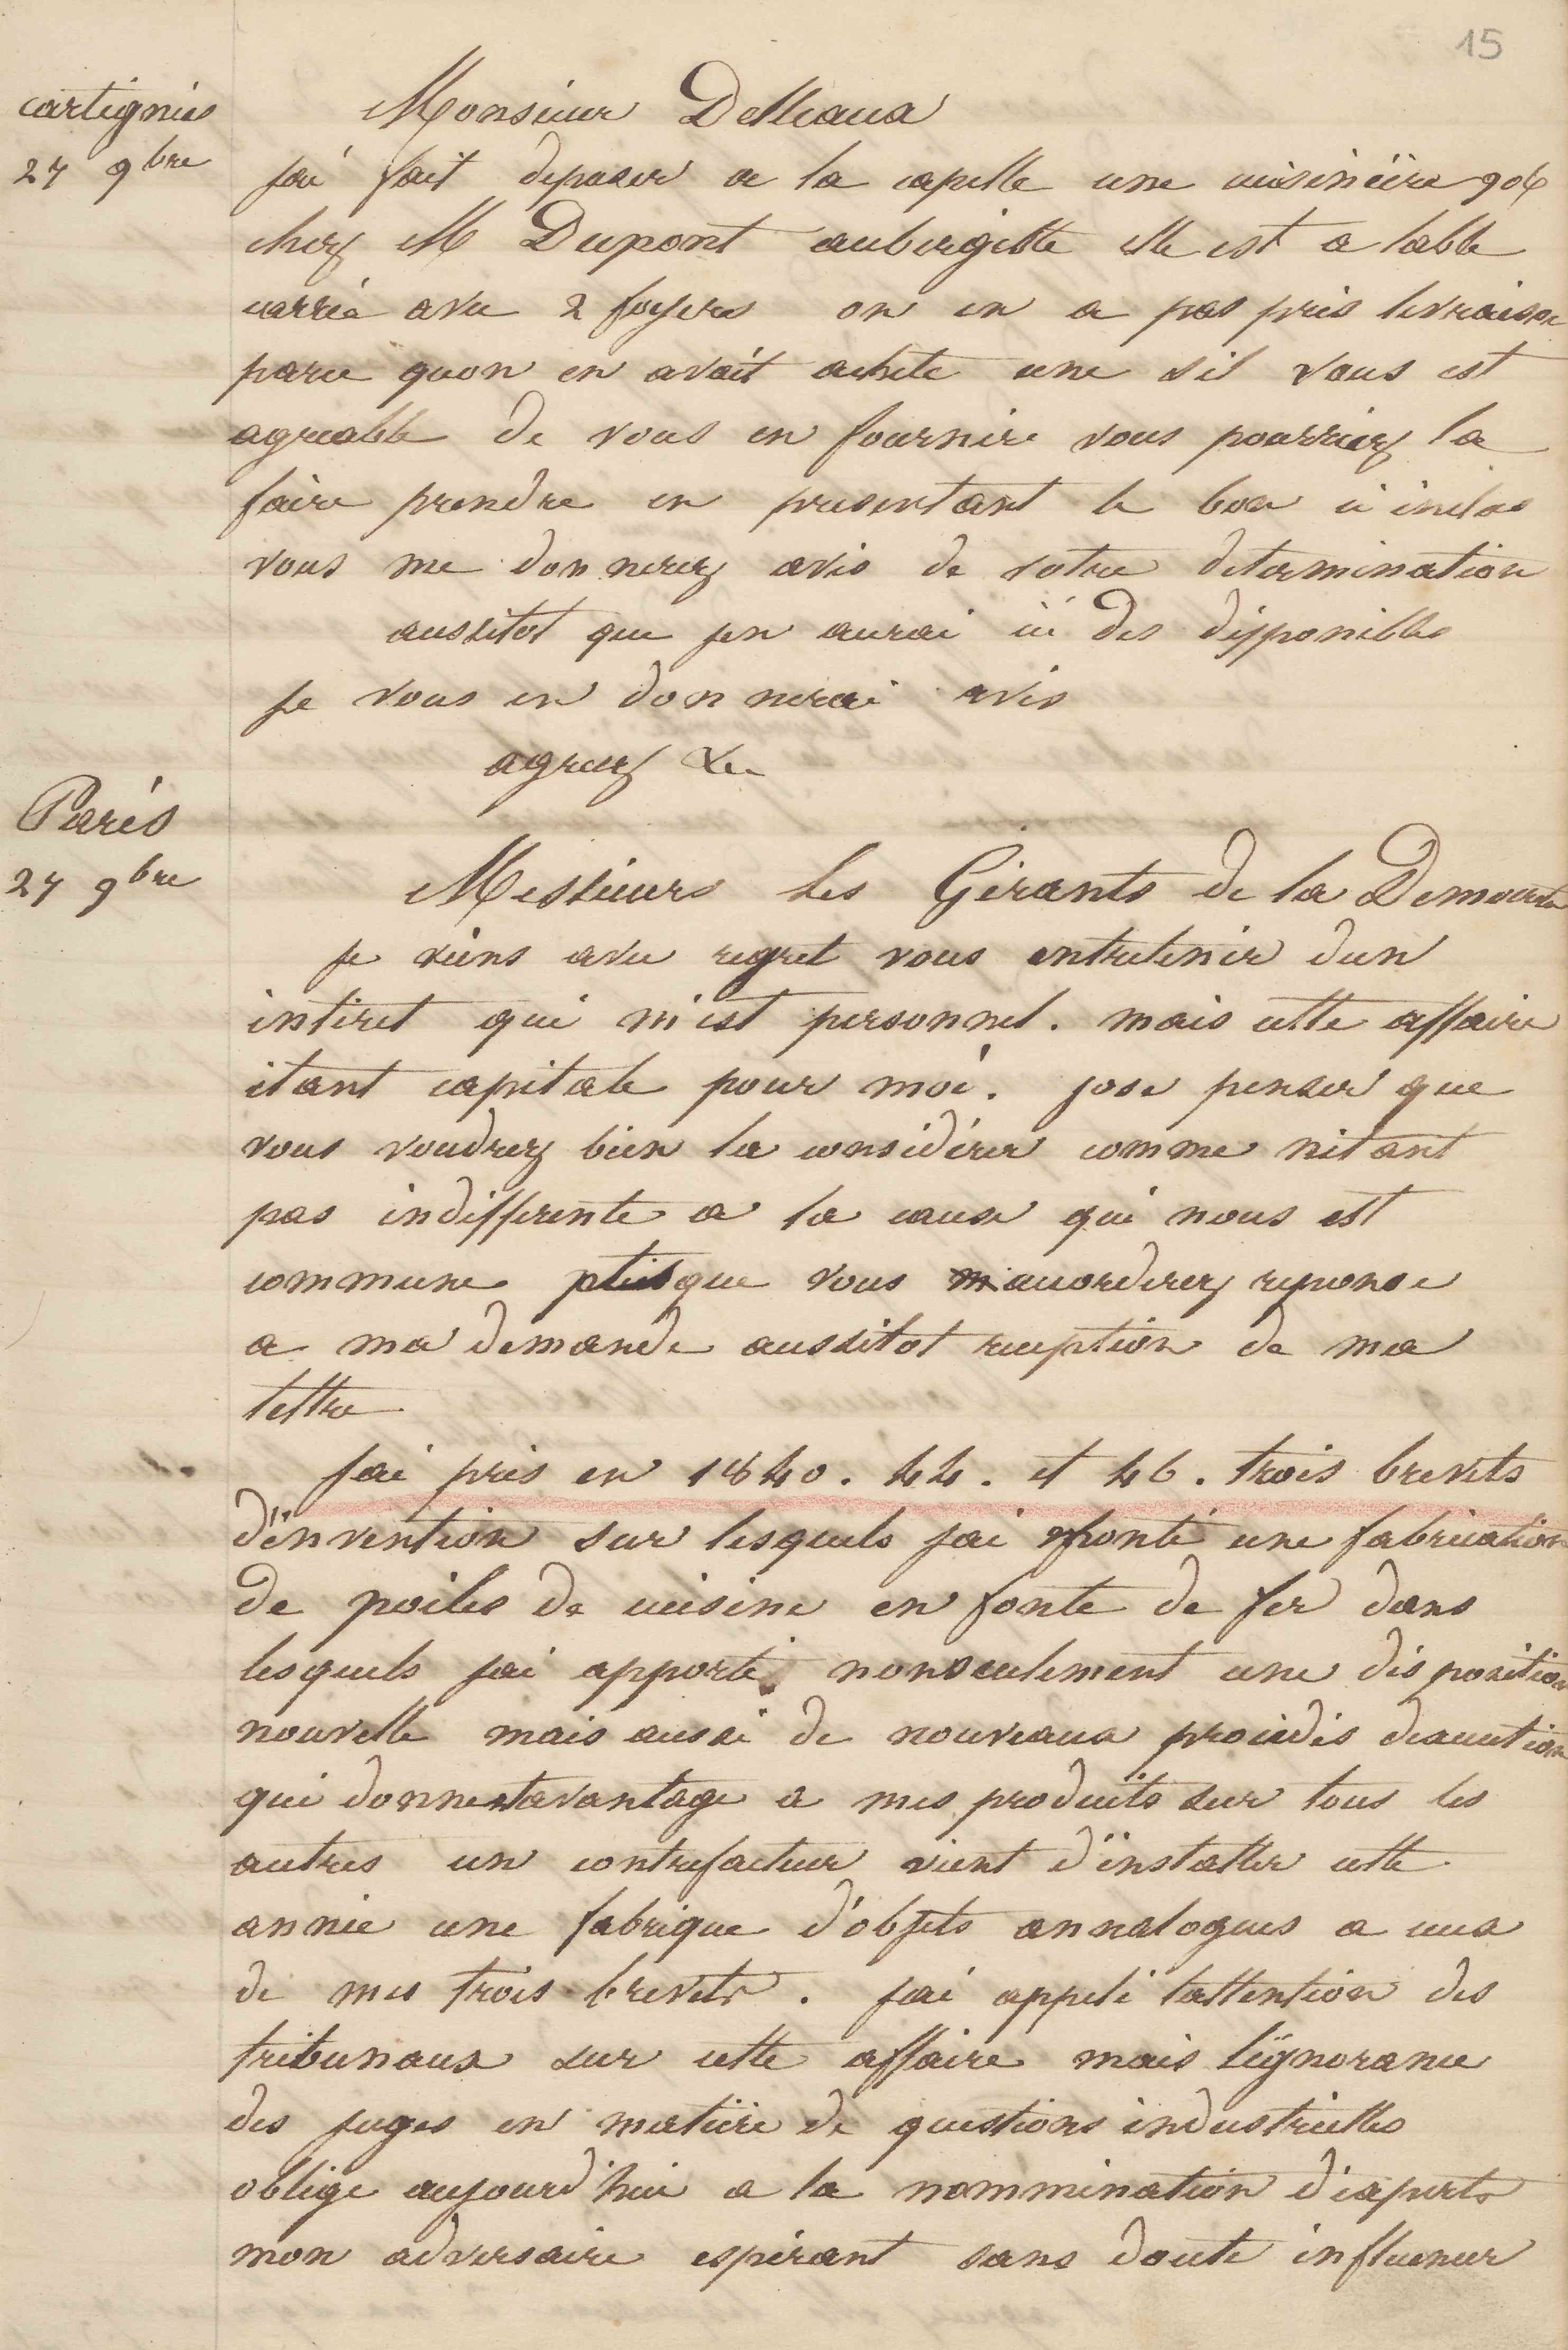 15
cartignies
27 9bre
Monsieur Delleaux
jai fait deposer a la capelle une cuisinière
chez M Dupont aubergiste elle est a table
carrée avec 2 foyers on en a pas pris livraison
parce quon en avait achete une sil vous est
agreable de vous en fournir vous pourriez la
faire prendre en presentant le bon ci inclus
vous me donnerez avis de votre determination
aussitot que jen aurai ici des disponibles
je vous en donnerai avis
agreez &c
Paris
27 9bre
Messieurs les Gérants de la Democratie
je viens avec regret vous entretenir dun
intéret qui m'est personnel. mais cette affaire
étant capitale pour moi. jose penser que
vous voudrez bien la considérer comme nétant
pas indifferente a la cause qui nous est
commune puisque vous accorderez reponse
a ma demande aussitot reception de ma
lettre
Jai pris en 1840. 44. et 46. trois brevets
d'invention sur lesquels jai monté une fabrication
de poêles de cuisine en fonte de fer dans
lesquels jai apporté nonseulement une disposition
nouvelle mais aussi de nouveaux procédés dexecution
qui donnent avantage a mes produits sur tous les
autres un contrefacteur vient d'installer cette
année une fabrique d'objets annalogues a ceux
de mes trois brevets. jai appelé lattention des
tribunaux sur cette affaire mais lignorance
des juges en matière de questions industrielles
oblige aujourd'hui a la nommination d'experts
mon adversaire espérant sans doute influencer